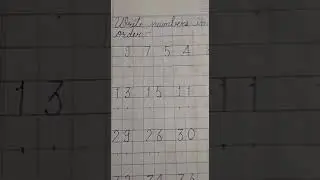 Write numbers in
order:-
9 7 5 4
13 15 11
29 26 30